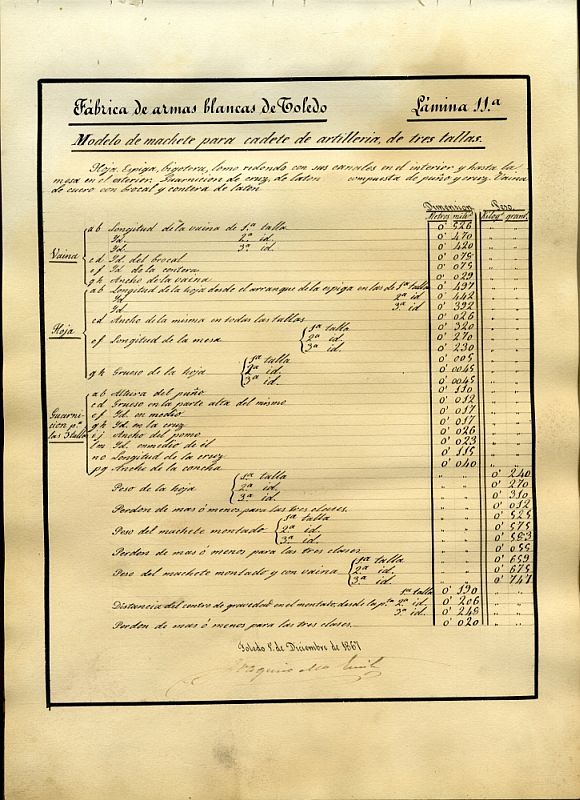 Fábrica de armas blancas de Toledo Lámina 11.a
Modelo de machete para cadete de artilleria, de tres tallas.
Hoja. Espiga, bigotera, lomo redondo con sus canales en el interior y hasta la
mesa en el esterior. Guarnicion de cruz, de laton compuesta de puño y cruz. Vaina
de cuero con brocal y contera de laton
Dimension Peso
Metros mils. Kilogs. grams.
Vaina
ab Longitud de la vaina de 1.a talla 0' 526
Id. 2.a id. 0' 470
Id. 3.a id. 0' 420
cd Id. del brocal 0' 075
ef Id. de la contera 0' 075
gh Ancho de la vaina 0' 029
Hoja
ab Longitud de la hoja desde el arranque de la espiga en las de 1.a talla 0' 497
Id. 2.a id. 0' 442
Id. 3.a id. 0' 392
cd Ancho de la misma en todas las tallas 0' 026
ef Longitud de la mesa 1.a talla 0' 320
2.a id. 0' 270
3.a id. 0' 230
gh Grueso de la hoja 1.a talla 0' 005
2.a id. 0' 0045
3.a id. 0' 0045
Guarnicion p.a las 3 tallas
ab Altura del puño 0' 110
cd Grueso en la parte alta del mismo 0' 012
ef Id. en medio 0' 017
gh Id. en la cruz 0' 017
ij Ancho del pomo 0' 026
lm Id. enmedio de él 0' 023
no Longitud de la cruz 0' 115
pq Ancho de la concha 0' 040
Peso de la hoja 1.a talla 0' 240
2.a id. 0' 270
3.a id. 0' 310
Perdon de mas ó menos para las tres clases 0' 012
Peso del machete montado 1.a talla 0' 525
2.a id. 0' 575
3.a id. 0' 583
Perdon de mas ó menos para las tres clases 0' 055
Peso del machete montado y con vaina 1.a talla 0' 629
2.a id. 0' 675
3.a id. 0' 747
1.a talla 0' 190
Distancia del centro de gravedad en el montado, desde la p.ta 2.a id. 0' 206
3.a id. 0' 248
Perdon de mas ó menos para las tres clases 0' 020
Toledo 1.o de Diciembre de 1867